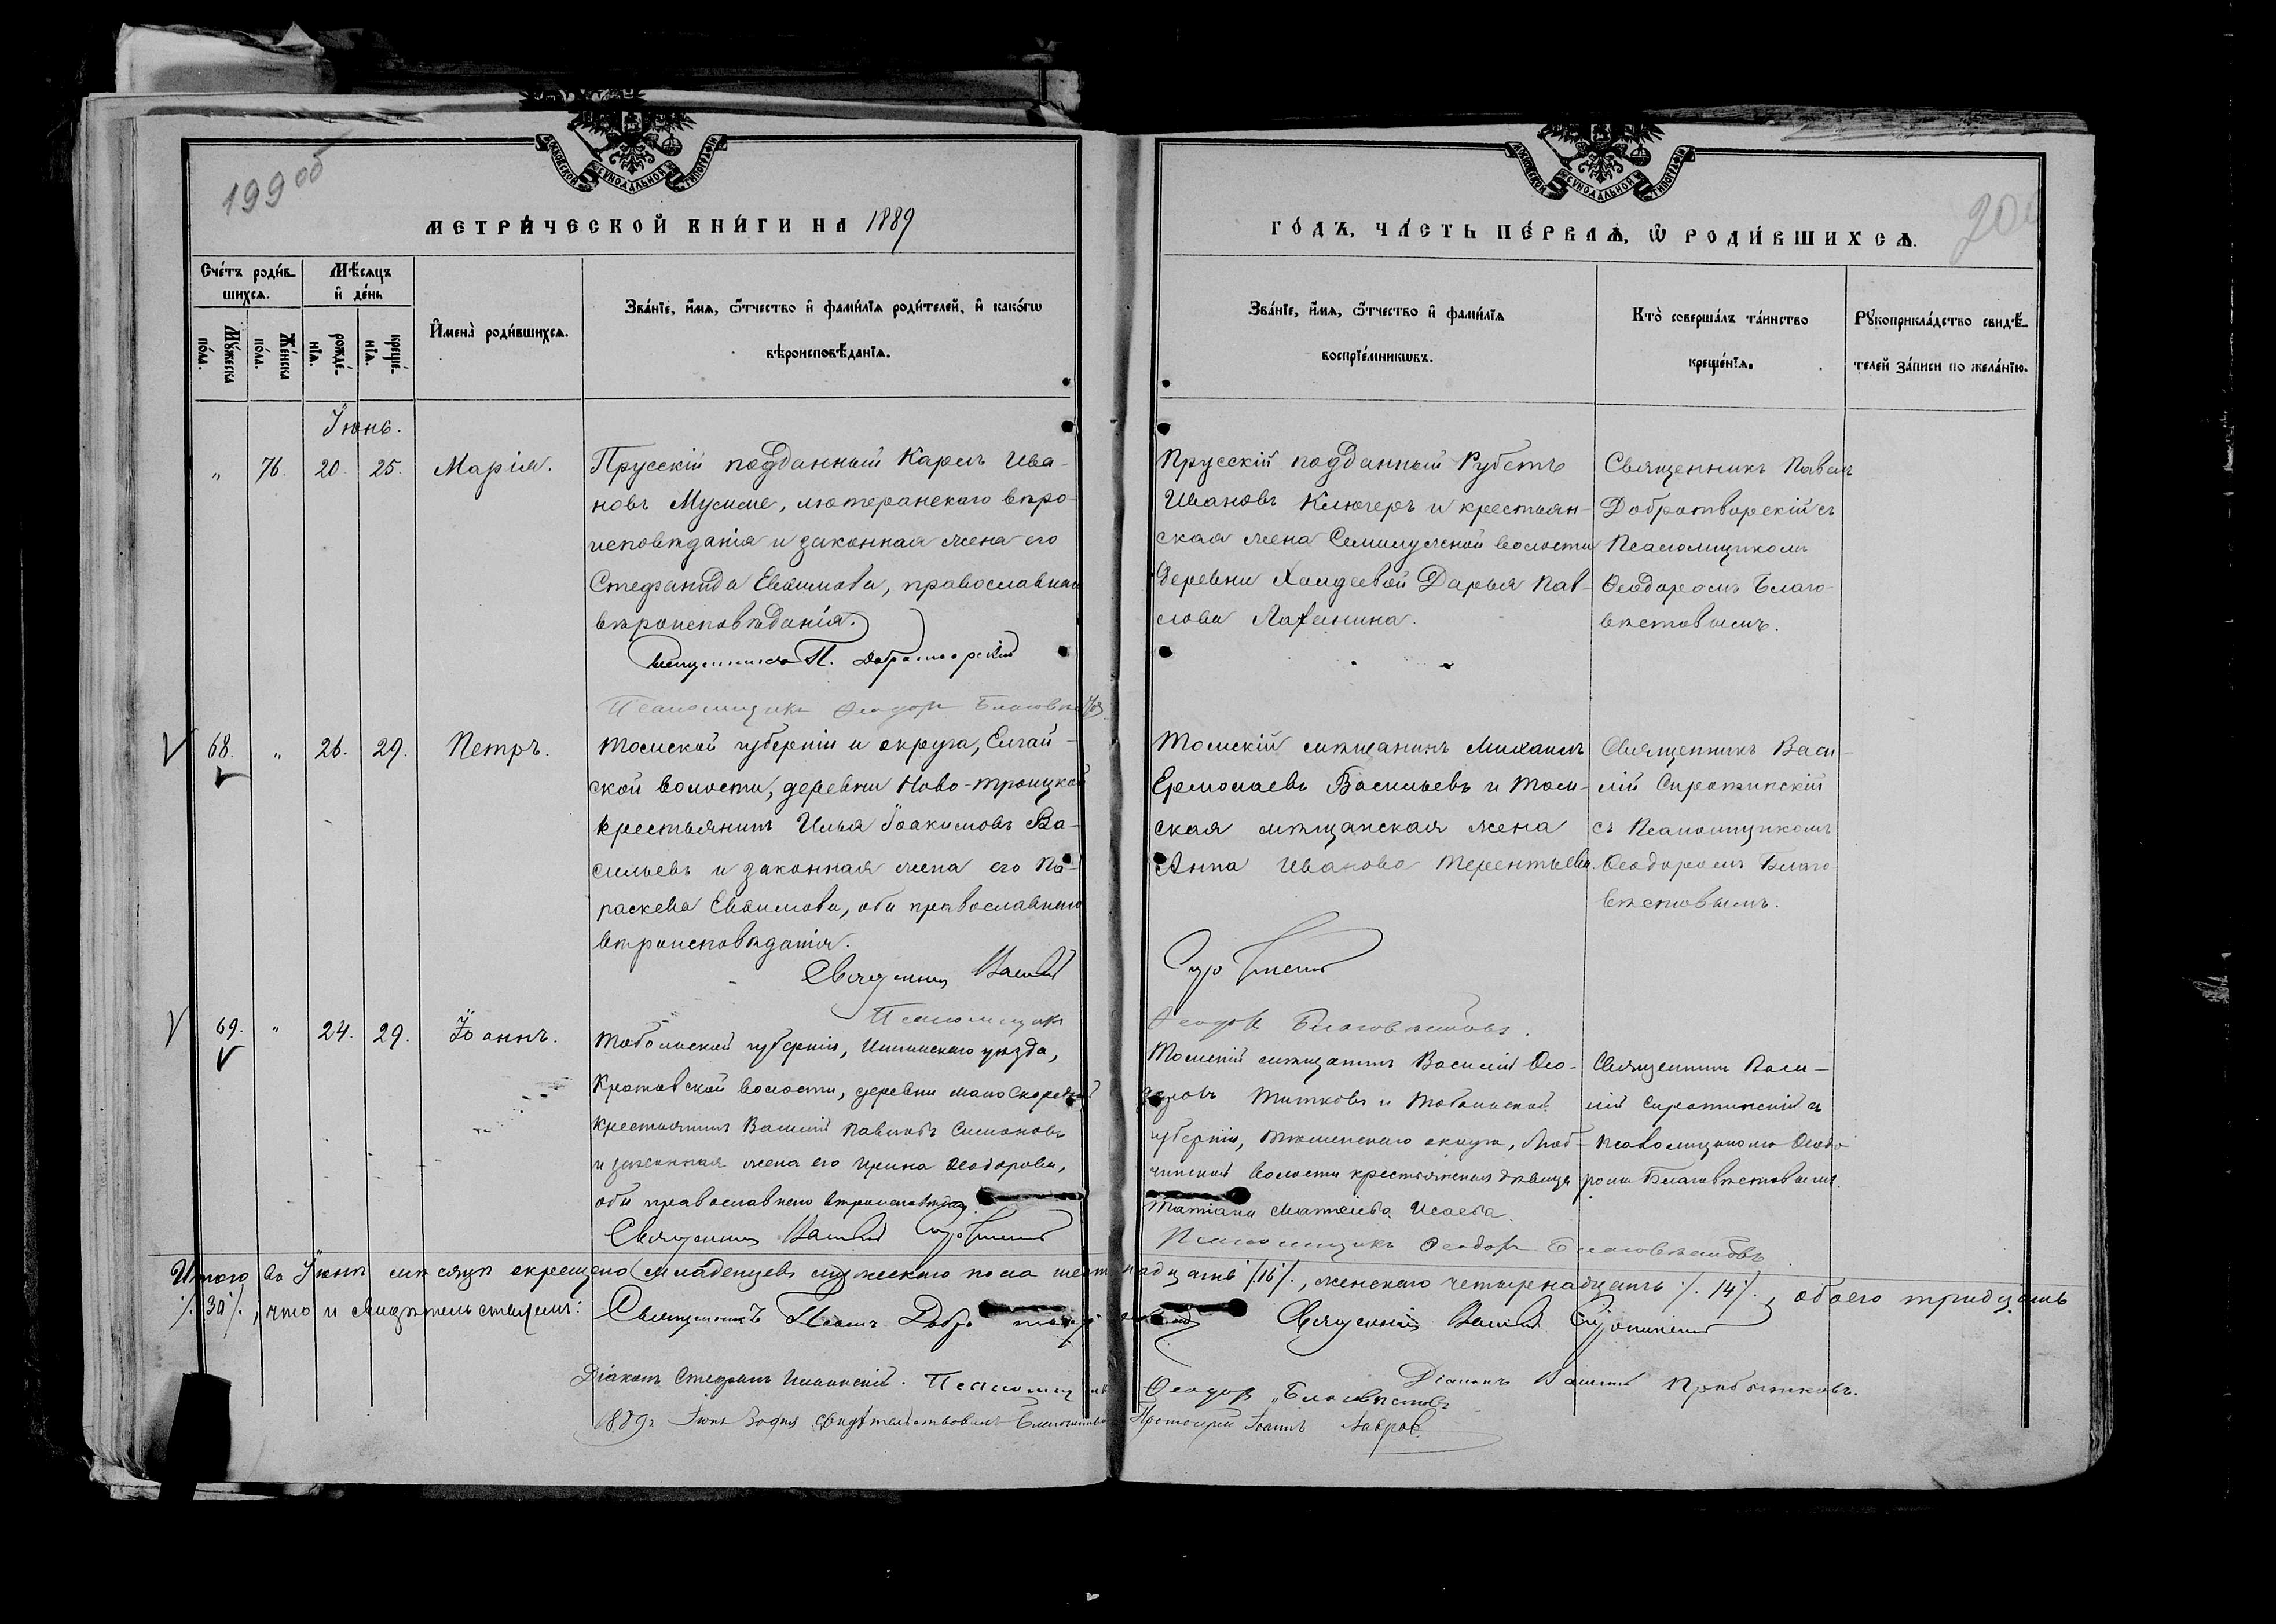 199 об
200
МОСКОВСКОЙ СѴНОДАЛЬНОЙ ТИПОГРАФІИ
МОСКОВСКОЙ СѴНОДАЛЬНОЙ ТИПОГРАФІИ
МЕТРИ́ЧЕСКОЙ КНИ́ГИ НА 1889
ГО́ДЪ, ЧА́СТЬ ПЕ́РВАѦ, Ѡ РОДИ́ВШИХСѦ.
Сче́тъ роди́в-
шихсѧ.
Мѣ́сѧцъ
и҆ де́нь
Му́жеска
по́ла.
Же́нска
по́ла.
рожде́-
нїѧ.
креще́-
нїѧ.
И҆мена̀ роди́вшихсѧ.
Зва́нїе, и҆́мѧ, ѻ҆́тчество и҆ фами́лїѧ роди́телей, и҆ како́гѡ
вѣроисповѣ́данїѧ.
Зва́нїе, и҆́мѧ, ѻ҆́тчество и҆ фами́лїѧ
воспрїе́мникѡвъ.
Кто̀ соверша́лъ та́инство
креще́нїѧ.
Рꙋкоприкла́дство свидѣ́-
телей за́писи по жела́нїю.
Іюнь.
" 76. 20. 25. Марія.
Прусскій подданный Карлъ Ива-
новъ, лютеранскаго вѣро-
исповѣданія и законная жена его
Стефанида Евѳимова, православнаго
вѣроисповѣданія.
Священникъ П. Добротворскій
Псаломщикъ Ѳеодоръ Благовѣстовъ
Прусскій подданный
Ивановъ Клюгеръ и крестьян-
ская жена Семилужной волости
деревни Халдеевой Дарья Пав-
лова
Священникъ Павелъ
Добротворскій съ
Псаломщикомъ
Ѳеодоромъ Благо-
вѣстовымъ.
68. " 26. 29. Петръ.
Томской губерніи и округа, Елгай-
ской волости, деревни Ново-Троицкой
крестьянинъ Илья Іоакимовъ Ва-
сильевъ и законная жена его Па-
раскева Евѳимова, оба православнаго
вѣроисповѣданія.
Священникъ Василій
Томскій мѣщанинъ Михаилъ
Ермолаевъ Васильевъ и Том-
ская мѣщанская жена
Анна Иванова Терентьева.
Сиротинскій
Священникъ Васи-
лій Сиротинскій
съ Псаломщикомъ
Ѳеодоромъ Благо-
вѣстовымъ.
Псаломщикъ
Ѳеодоръ Благовѣстовъ.
69. " 24. 29. Іоаннъ.
Тобольской губерніи, Ишимскаго уѣзда,
Кротовской волости, деревни
крестьянинъ Василій Павловъ Симоновъ
и законная жена его Ирина Ѳеодорова,
оба православнаго вѣроисповѣд.
Священникъ Василій Сиротинскій
Томскій мѣщанинъ Василій Ѳео-
доровъ Титковъ и Тобольской
губерніи, Тюменскаго округа,
волости крестьянская дѣвица
Татіана Матѳіева Исаева.
Псаломщикъ Ѳеодоръ Благовѣстовъ
Священникъ Васи-
лій Сиротинскій съ
Псаломщикомъ Ѳеодо-
ромъ Благовѣстовымъ.
Итого въ Іюнѣ мѣсяцѣ окрещено младенцевъ мужескаго пола шестнадцать /.16./, женскаго четырнадцать /.14./, обоего тридцать
/.30./, что и свидѣтельствуемъ: Священникъ Павелъ Добротворскій Священникъ Василій Сиротинскій
Діаконъ Стефанъ Псаломщикъ Ѳеодоръ Благовѣстовъ Діаконъ Василій
1889 Іюля свидѣтельствовалъ Благочинный Протоіерей Іоаннъ Лавровъ.